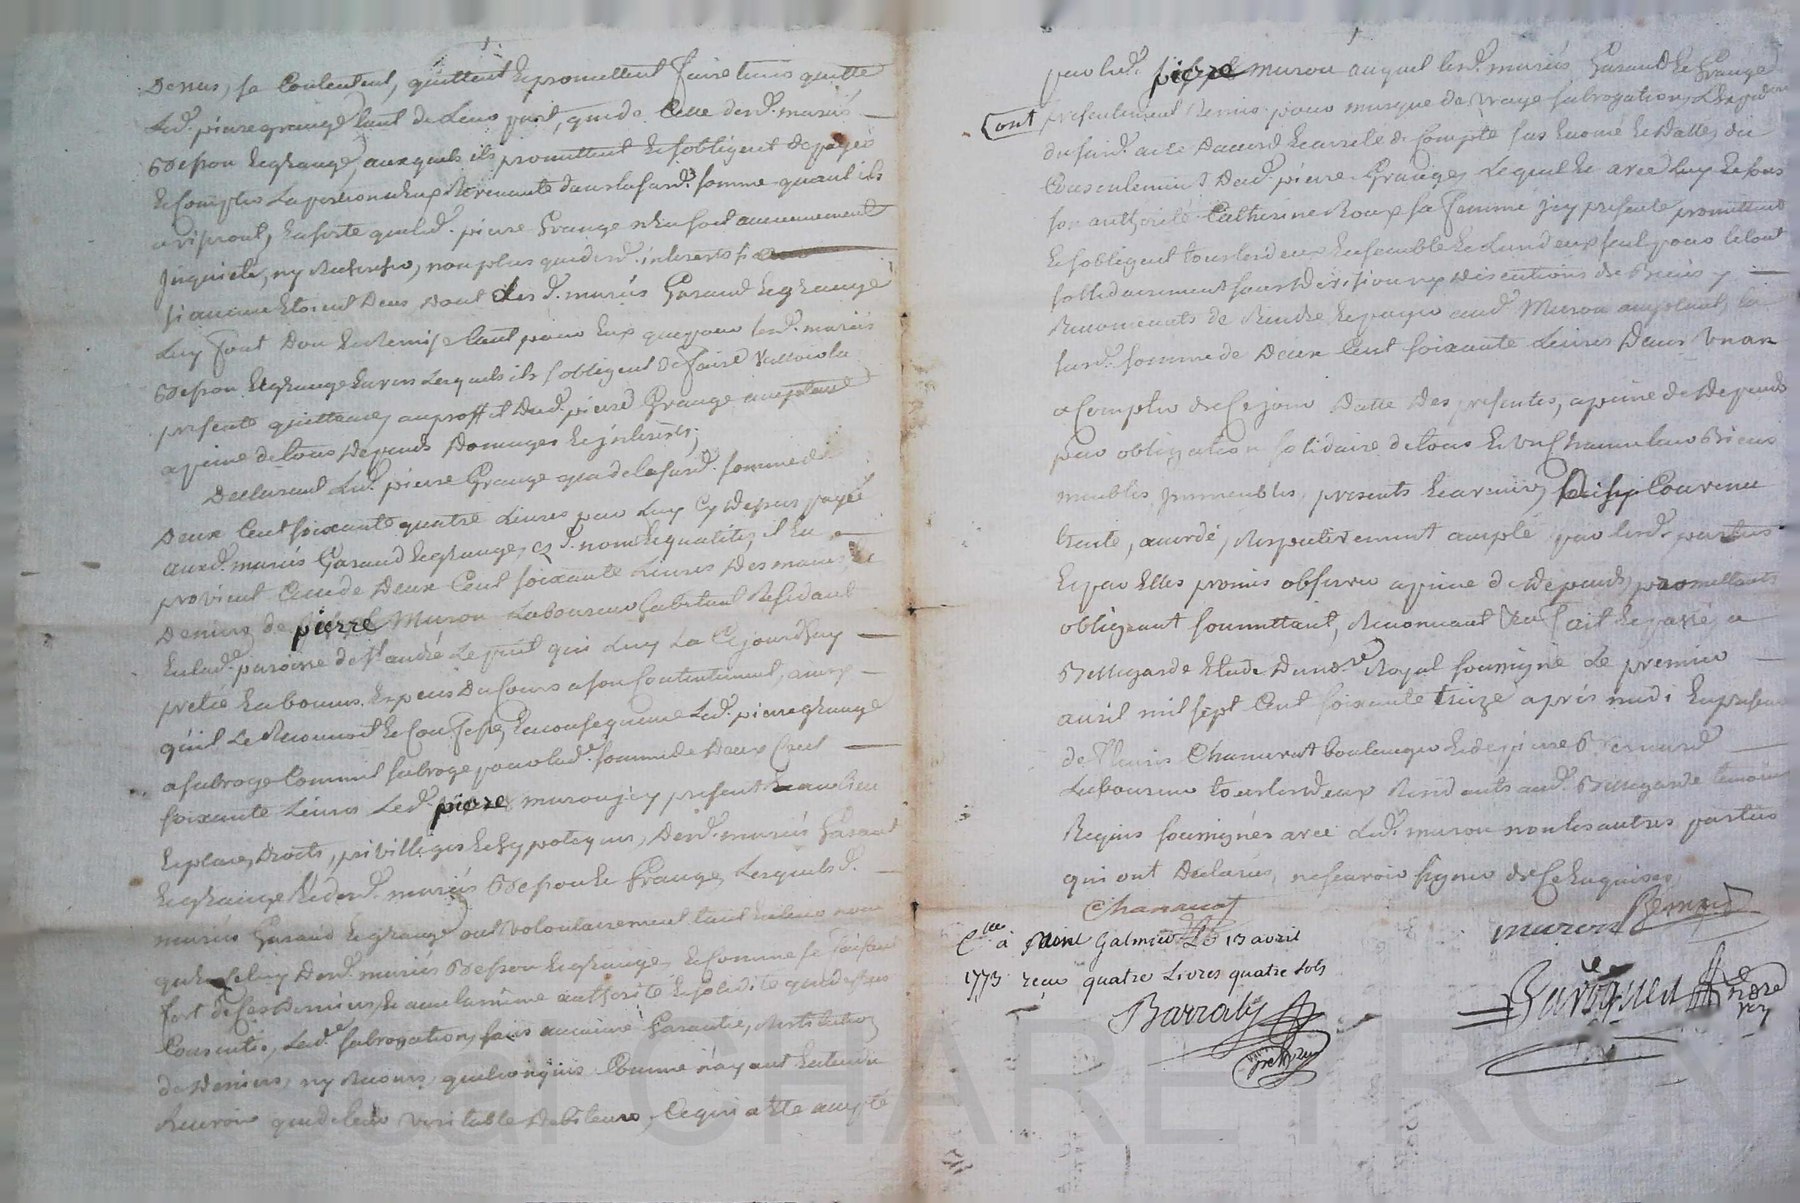 Denus, se Contentent, quittent Et promettent faire tenir quitte
Led. pierre grange tant de Leur part, que de Celle desd. mariés
Besson Et grange, auxquels ils promettent Et s'obligent de payer
Et Compter La portion à Eux Revenante dans lasusd. somme quant ils
en sorte que led. pierre Grange n'en soit aucunement
Inquieté, ny Recherché, non plus que desd. interests
si aucuns Etoient Deus, Dont Lesd. mariés Garand Et grange
Luy font Don Et Remise tant pour Eux que pour lesd. mariés
Besson Et grange Envers Lesquels ils s'obligent de faire Valloir la
presente quittance, au proffit Dud. pierre Grange acceptant
a peine de tous Depends Domages Et jnterests;
Declarant Led. pierre Grange que de lasusd. somme de
Deux Cent soixante quatre Livres par Luy Cy Dessus payée
auxd. mariés Garand Et grange, esd. noms Et qualités, il En
provient Celle de Deux Cent soixante Livres Des mains Et
Deniers de pierre Muron Laboureur habitant Resident
En lad. paroisse de St andré Le puit qui Luy La Cejourdhuy
pretée En bonnes Especes Du Cours a son Contentement, ainsy
qu'il Le Reconnoit Et Confesse, En consequence Led. pierre grange
a subrogé Comme il subroge pour lad. somme de Deux Cent
soixante Livres Led. pierre muron jcy present Et au Lieu
Et place, Droits, privilleges Et hypoteques, Desd. mariés Garand
Et grange Et desd. mariés Besson Et Grange, Lesquels d.
mariés Garand Et grange ont volontairement tant En Leur nom
qu'En Celuy Desd. mariés Besson Et grange, Et Comme se faisant
fort de Ces Derniers, Et avec La même authorité Et solidité que dessus
Consenti, Lad. subrogation, sans aucune Garantie, Restitution
de Deniers, ny Recours quelconques Comme n'ayant Entendu
Recevoir que de leur Veritable Debiteur, Ce qui a été accepté
par led. pierre muron auquel lesd. mariés Garand Et Grange
ont presentement Remis pour marque de Vraye subrogation, L'Expedition
du susd. acte D'accord Et arreté de Compte sus Enoncé Et Datté, du
Consentement Dud. pierre Grange, Lequel Et avec Luy Et sous
son authorité Catherine Roux sa femme jcy presente promettent
Et s'obligent tous les deux Ensemble Et L'un d'eux seul pour le tout
sollidairement sans Division ny Discutions de Biens y
Renonceants de Rendre Et payer aud. Muron acceptant, la
susd. somme de Deux Cent soixante Livres Dans Un an
a Compter de Ce jour Datte Des presentes, a peine de Depends
par obligation solidaire de tous Et Un Chacun leurs Biens
meubles Jmmeubles, presents Et avenirs, Ainsy Convenu
traité, accordé, Respectivement accepté par lesd. parties
Et par Elles promis observer a peine de Depends, promettants
obligeant soumettant, Renonceant &ca fait Et passé a
Bellegarde Etude Du nore Royal soussigné Le premier
avril mil sept Cent soixante treize après midi En presence
de fleuris Chanavat boulanger Et de pierre Bernard
Laboureur tous les deux Residents aud. Bellegarde temoins
Requis soussignés avec Led. muron non les autres parties
qui ont Declarés, ne scavoir signer de Ce Enquises,
Chanavat
muron Bernard
Clée à Saint Galmier Le 13 avril
1773 reçu quatre Livres quatre sols
Barraly